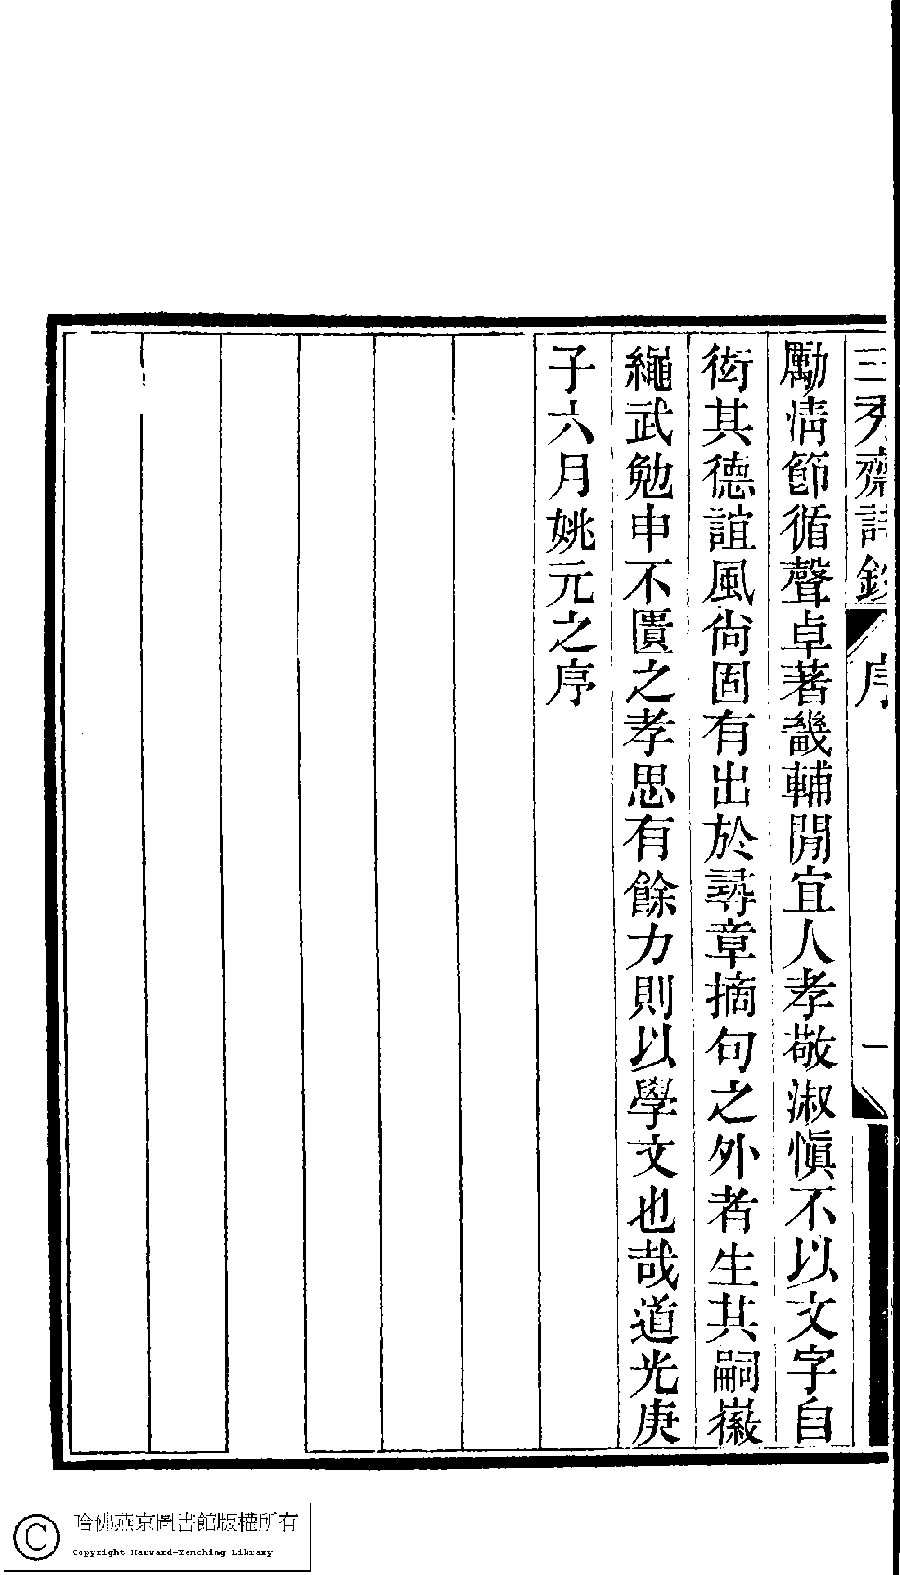 三秀齋詩鈔 序 一
勵清節循聲卓著畿輔閒宜人孝敬淑愼不以文字自
衒其德誼風尙固有出於尋章摘句之外者生其嗣徽
繩武勉申不匱之孝思有餘力則以學文也哉道光庚
子六月姚元之序
哈佛燕京圖書館版權所有
Copyright Harvard-Yenching Library